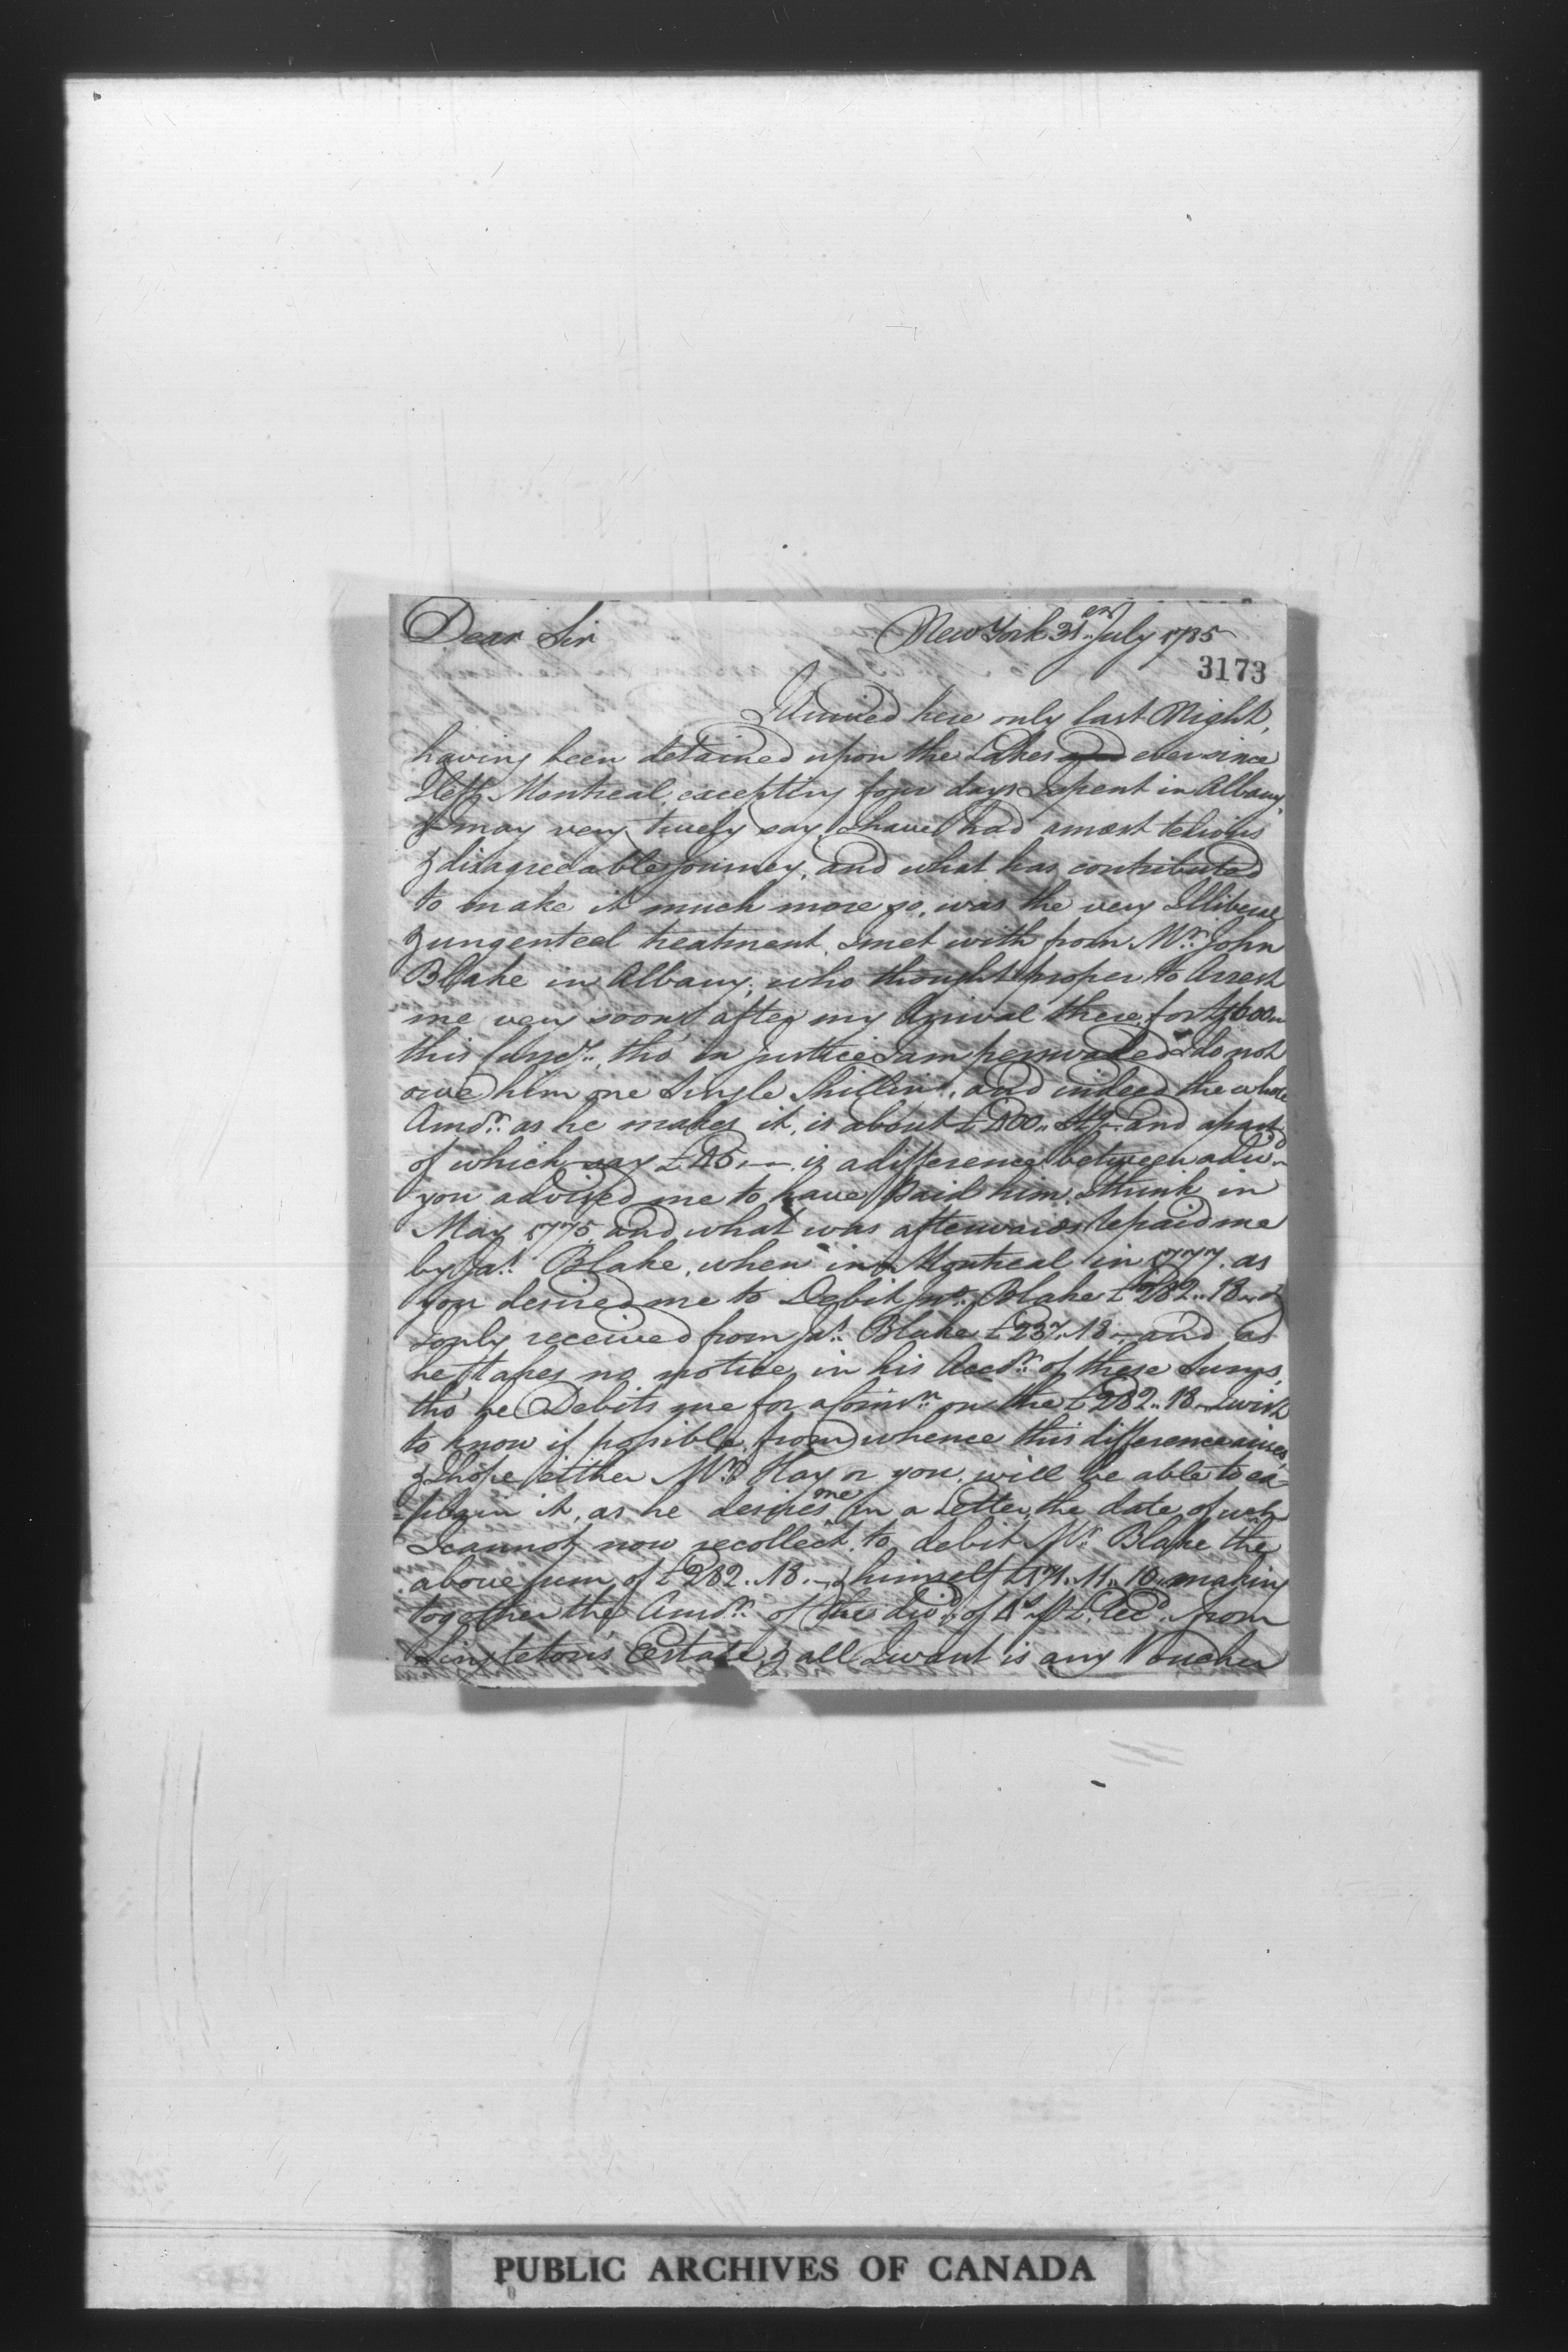 Dear Sir
New York 31st July 1785
3173
I Arrived here only last Night,
having been detained upon the Lakes ever since
I left Montreal, excepting four days I spent in Albany,
I may very truely say, I have had a most tedious
& disagreeable Journey, and what has contributed
to make it much more so, was the very Illiberal
& ungenteel treatment, I met with from Mr. John
Blake in Albany, who thought proper to Arrest
me very soon after my Arrival there, for
this tho' in justice I am perswaded I do not
owe him one Single Shilling, and indeed the whole
Amot. as he makes it, is about £400 and a part
of which say £45 .. — is a difference between
you advised me to have Paid him, I think in
May 1775, and what was afterwards repaid me
by Jas. Blake, when in Montreal in 1777, as
you desired me to Debit Jno. Blake £282.. 18 .. &
I only received from Jas. Blake £237.. 18 .. — and as
he takes no notice in his Accot. of these Sums,
tho' he Debits me for a Comisn. on the £282.. 18 .. I wish
to know if possible, from whence this difference arises,
& I hope either Mr. Hay or you, will be able to ex-
=plain it, as he desires me in a Letter, the date of wch.
I cannot now recollect, to debit Mr. Blake the
above sum of £282.. 18. — & himself making
together the Amot. of the divd. of 4s. P £. Recd. from
Singleton's Estate, & all I want is any Voucher
PUBLIC ARCHIVES OF CANADA